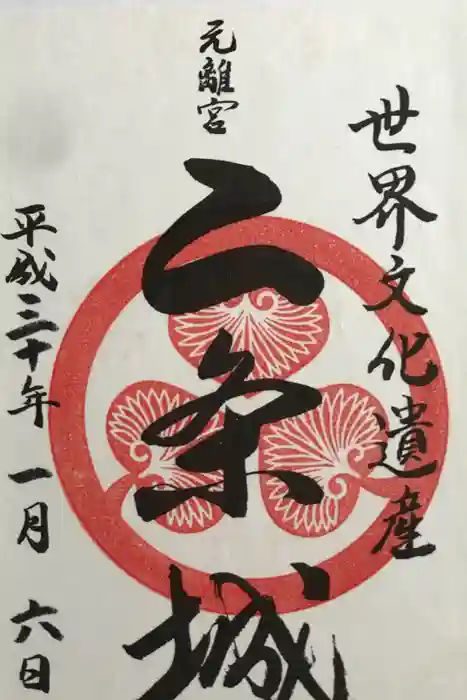 世界文化遺産
元離宮
二条城
平成三十年一月六日